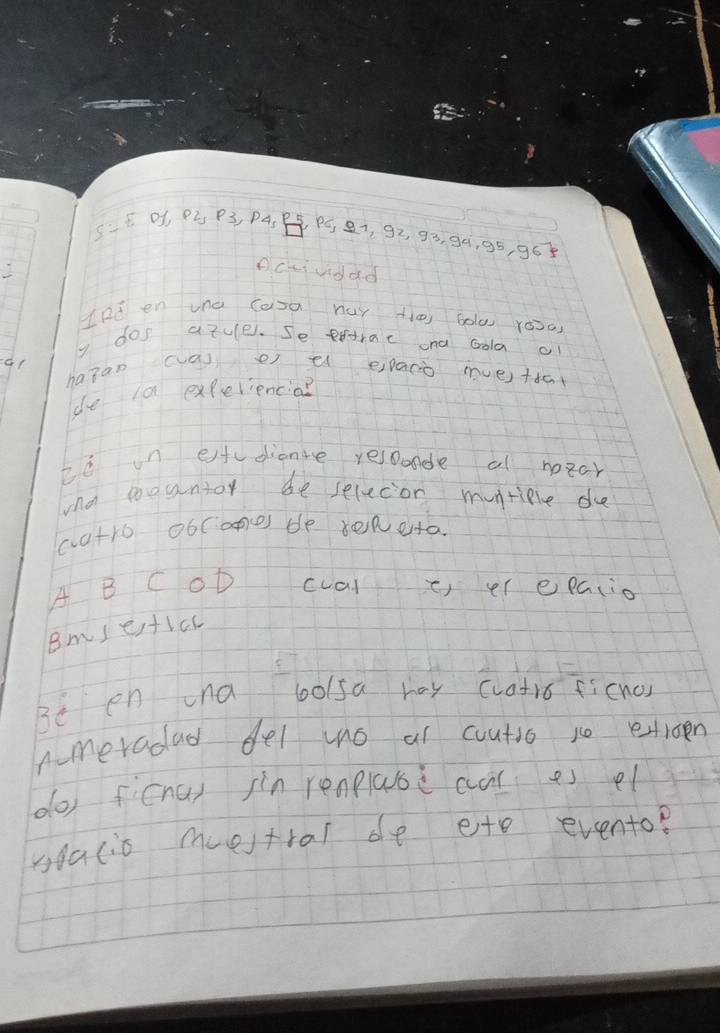 S = { P1, P2, P3, P4, P5, P6, g1, g2, g3, g4, g5, g6 }
Actividad
1R¿ en una casa hay tres bolas rosas
y dos azules. Se extrae una bola al
hazar cual es el espacio muestral
de la experiencia?
2¿ un estudiante responde al hozar
una preguntar de selecion multiple de
cuatro obciones de respuesta.
A B C O D cual es el epacio
3¿ en una bolsa hay cuatro fichas
numeradad del uno al cuatro se extraen
dos fichas sin renplaso ¿ cual es el
espacio muestral de este evento?